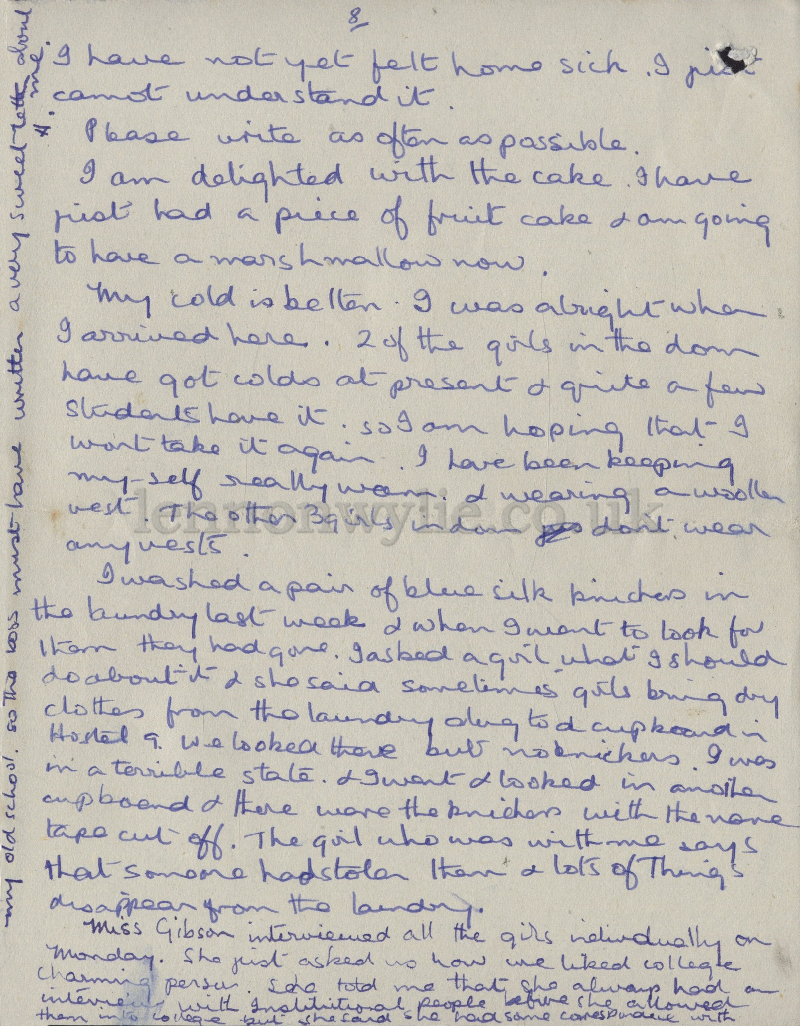 8
I have not yet felt home sick. I just
cannot understand it.
Please write as often as possible.
I am delighted with the cake. I have
just had a piece of fruit cake & am going
to have a marshmallow now.
My cold is better. I was alright when
I arrived here. 2 of the girls in the dorm
have got colds at present & quite a few
students have it. so I am hoping that I
wont take it again. I have been keeping
my-self really warm. & wearing a woollen
vest. The other 3 girls in dorm dont wear
any vests.
I washed a pair of blue silk knickers in
the laundry last week & when I went to look for
them they had gone. I asked a girl what I should
do about it & she said sometimes girls bring dry
clothes from the laundry to a cupboard in
Hostel 9. We looked there but no knickers. I was
in a terrible state. & I went & looked in another
cupboard & there were the knickers with the name
tape cut off. The girl who was with me says
that someone had stolen them & lots of Things
disappear from the laundry.
Miss Gibson interviewed all the girls individually on
Monday. She just asked us how we liked college
charming person. She told me that she always had an
interview with Institutional people before she allowed
them into college but she said she had some correspondence with
my old school. so the boss must have written a very sweet letter about
me.
H.
lennonwylie.co.uk